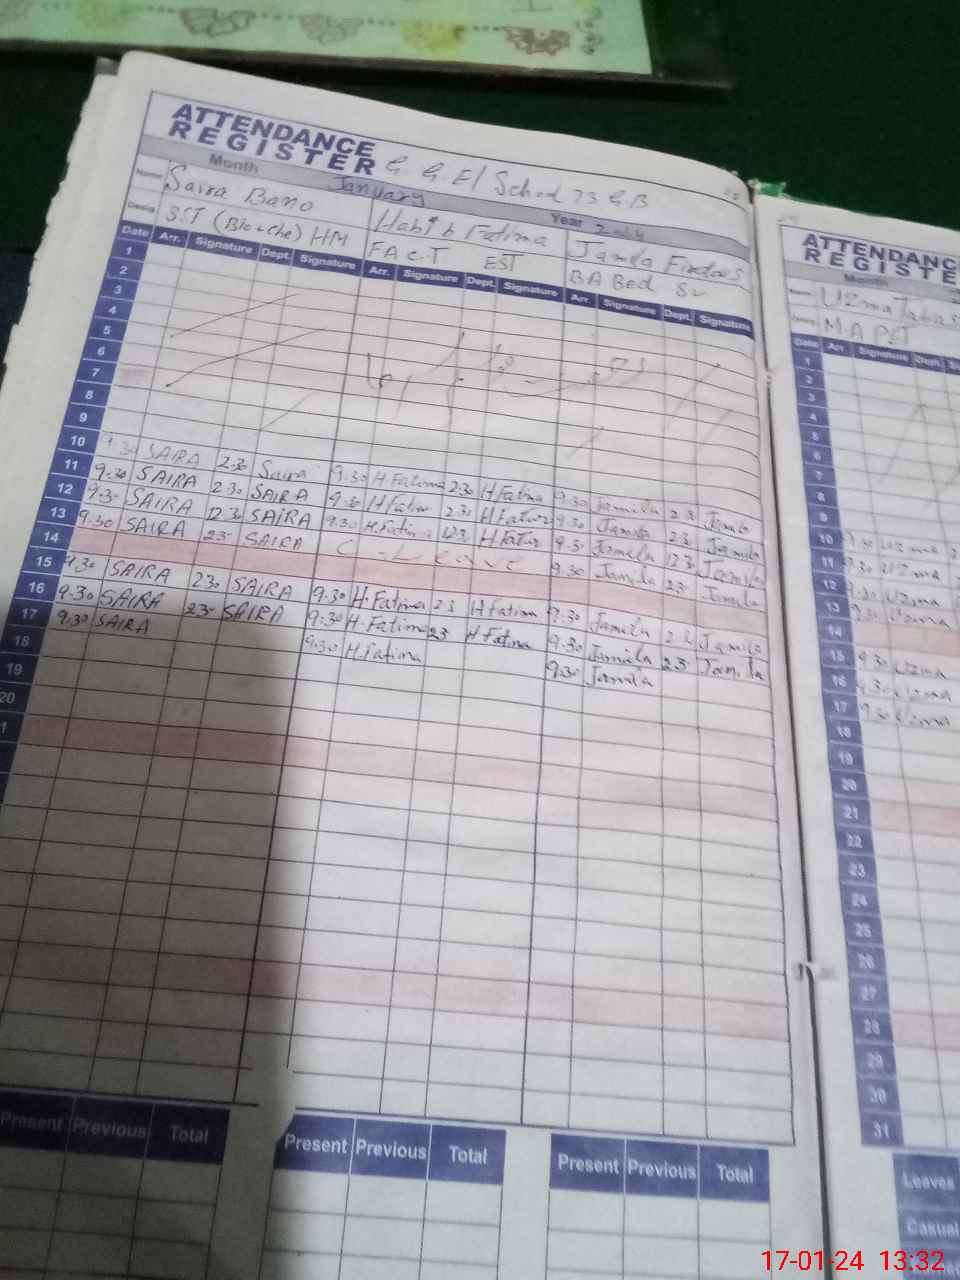 ATTENDANCE
REGISTER G. G. El School 73 G.B
Month January Year 2024
Name Saira Bano Habib Fatima Jamila Firdous
Desig SST (Bio+Che) HM FA C.T EST BA Bed
Date Arr. Signature Dept. Signature Arr. Signature Dept. Signature Arr. Signature Dept. Signature
1
2
3
4
5
6
7
8
9
10 9.30 SAIRA 2.30 Saira 9.30 H.Fatima 2.30 H Fatima 9.30 Jamila 2.3 Jamila
11 9.30 SAIRA 2.30 SAIRA 9.30 H Fatima 2.3 H Fatima 9.30 Jamila 2.3 Jamila
12 9.30 SAIRA 12.30 SAIRA 9.30 H.Fatima 12.3 H Fatima 9.30 Jamila 12.3 Jamila
13 9.30 SAIRA 2.3 SAIRA C - Leave 9.30 Jamila 2.3 Jamila
14
15 9.30 SAIRA 2.30 SAIRA 9.30 H.Fatima 2.3 H Fatima 9.30 Jamila 2.3 Jamila
16 9.30 SAIRA 2.3 SAIRA 9.30 H.Fatima 2.3 H Fatima 9.30 Jamila 2.3 Jamila
17 9.30 SAIRA 9.30 H.Fatima 9.30 Jamila
18
19
20
1
Present Previous Total
Present Previous Total
Present Previous Total
ATTENDANC
REGISTE
Month
Uzma
M A
Date Arr. Signature Dept.
1
2
3
4
5
6
7
8
9
10 9.30 Uzma
11 9.30 Uzma
12 9.30 Uzma
13 9.30 Uzma
14
15 9.30 Uzma
16 9.30 Uzma
17 9.30 Uzma
18
19
20
21
22
23
24
25
26
27
28
29
30
31
Leaves
Casual
17-01-24 13:32